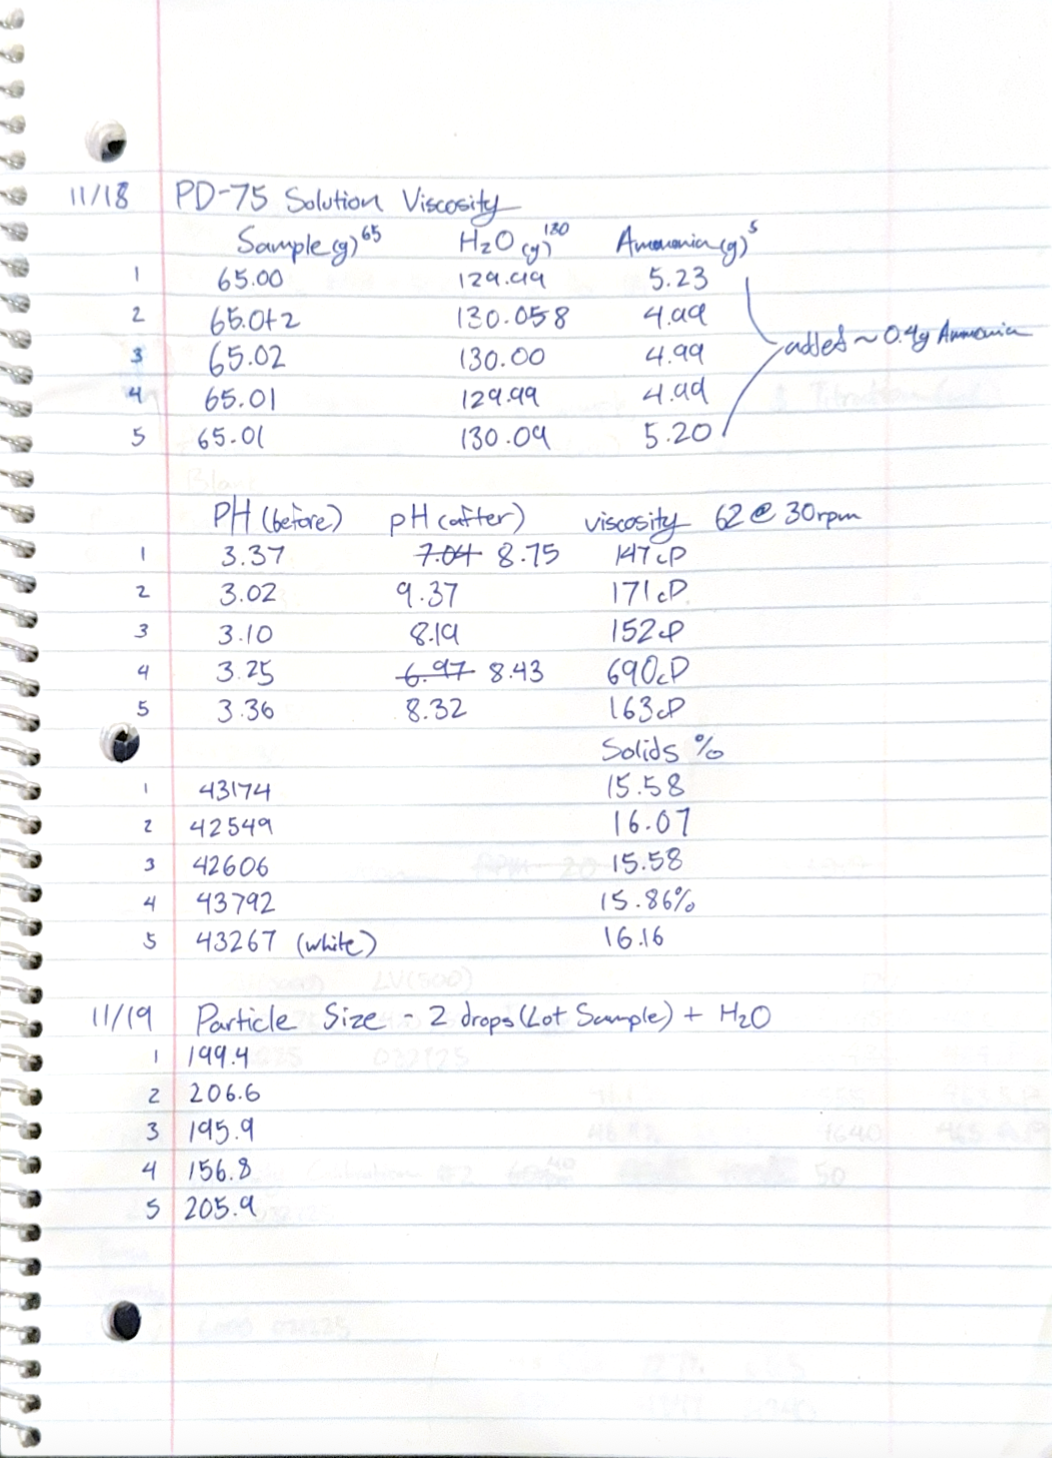 11/18 PD-75 Solution Viscosity
Sample (g) 65 H2O (g) 130 Ammonia (g) 5
1 65.00 129.99 5.23
2 65.012 130.058 4.99
3 65.02 130.00 4.99
added ~ 0.4g Ammonia
4 65.01 129.99 4.99
5 65.01 130.09 5.20
PH (before) pH (after) viscosity 62 @ 30rpm
1 3.37 7.04 8.75 147cP
2 3.02 9.37 171cP
3 3.10 8.19 152cP
4 3.25 6.97 8.43 690cP
5 3.36 8.32 163cP
Solids %
1 43174 15.58
2 42549 16.07
3 42606 15.58
4 43792 15.86%
5 43267 (white) 16.16
11/19 Particle Size - 2 drops (Lot Sample) + H2O
1 199.4
2 206.6
3 195.9
4 156.8
5 205.9